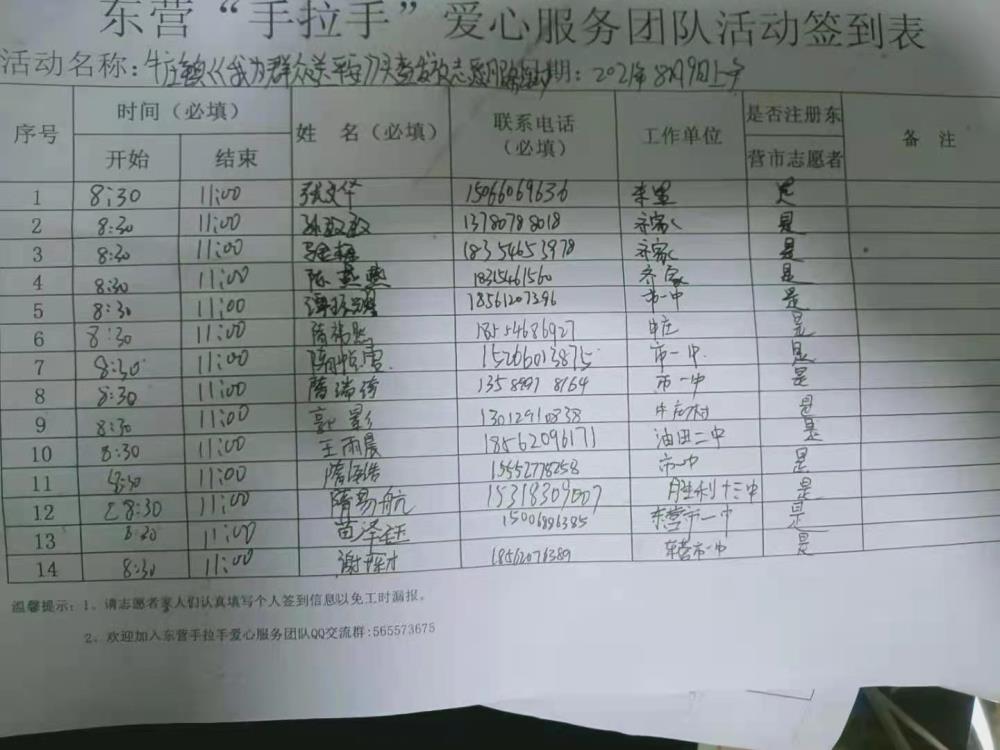 东营“手拉手”爱心服务团队活动签到表
活动名称：牛庄镇《我为群众 志愿服务 期：2021年8月9日上午
序号 时间（必填） 姓 名（必填） 联系电话（必填） 工作单位 是否注册东营市志愿者 备 注
开始 结束
1 8:30 11:00 张文华 15066069636 是
2 8:30 11:00 13780788018 是
3 8:30 11:00 18354653978 是
4 8:30 11:00 陈燕燕 18315461560 是
5 8:30 11:00 18561207396 市一中 是
6 8:30 11:00 18554686927 牛庄 是
7 8:30 11:00 15206013875 市一中 是
8 8:30 11:00 隋瑞琦 是 市一中
9 8:30 11:00 郭影 牛庄村 是
10 8:30 11:00 王雨晨 18562096171 油田二中 是
11 8:30 11:00 15552778258 市一中 是
12 8:30 11:00 隋易航 15318309007 胜利十三中 是
13 8:30 11:00 苗泽钰 15006896385 东营市一中 是
14 8:30 11:00 18562076389 东营市一中 是
温馨提示：1、请志愿者家人们认真填写个人签到信息以免工时漏报。
2、欢迎加入东营手拉手爱心服务团队QQ交流群:565573675